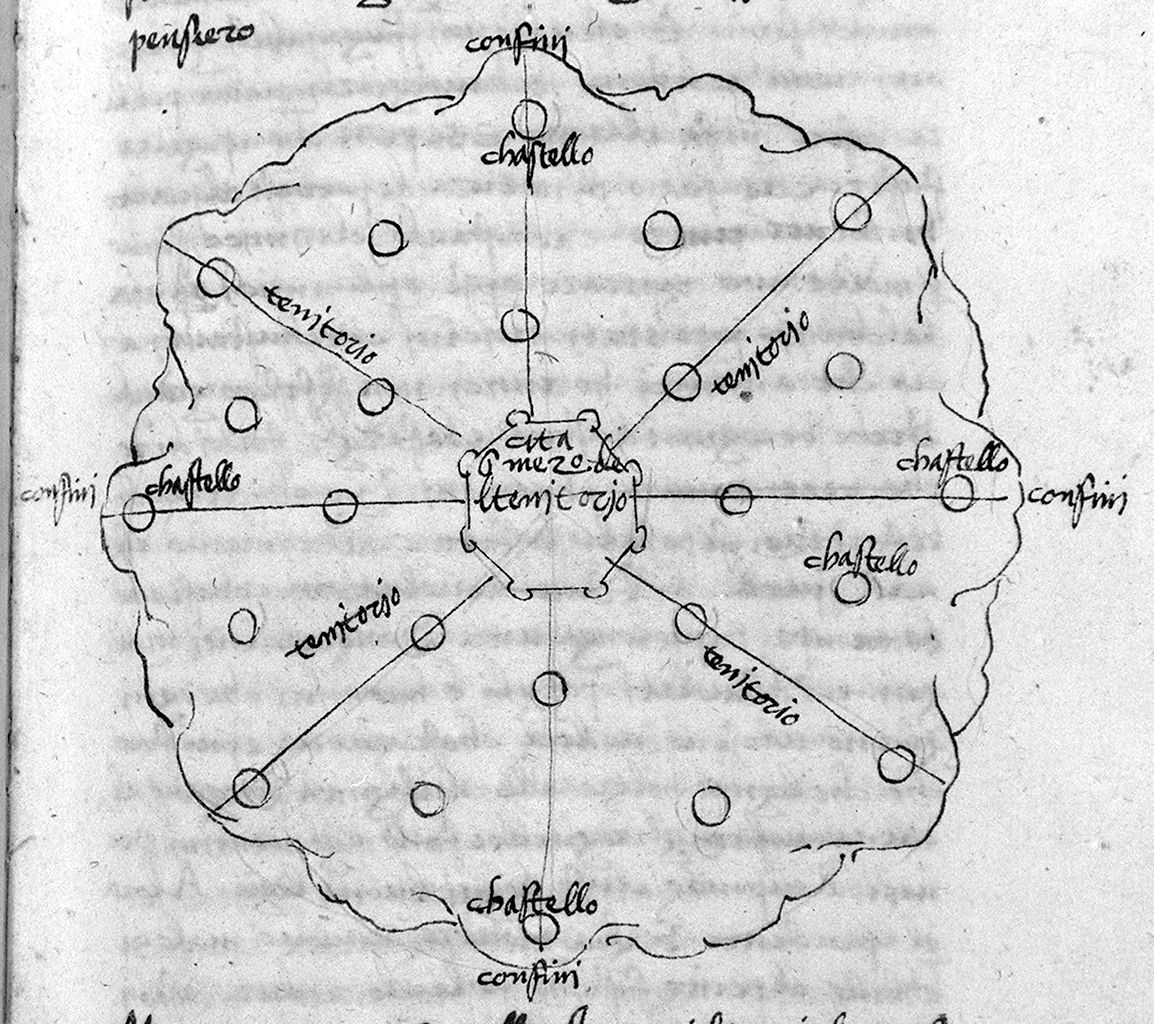 pensiero
confini
chastello
territorio
territorio
cita
mezo de
l territorio
chastello
chastello
confini
confini
chastello
territorio
territorio
chastello
confini